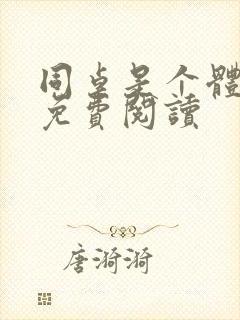 同桌是个體
免費閱讀
唐漪漪